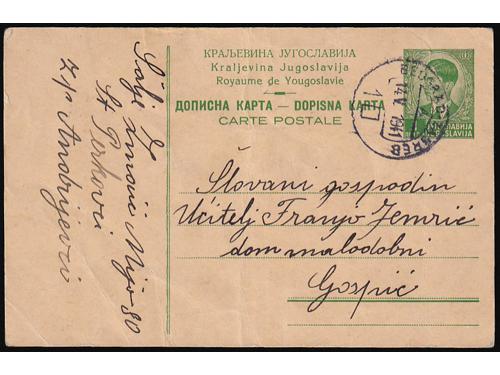 КРАЉЕВИНА ЈУГОСЛАВИЈА
Kraljevina Jugoslavija
Royaume de Yougoslavie
ДОПИСНА КАРТА — DOPISNA KARTA
CARTE POSTALE
BEOGRAD ZAGREB
14 V 1941
Slovani gospodin
Učitelj Franjo Jemrić
dom malodobni
Gospić
Šalje
Mijo 80
St Perkovci
z/p Andrijevci